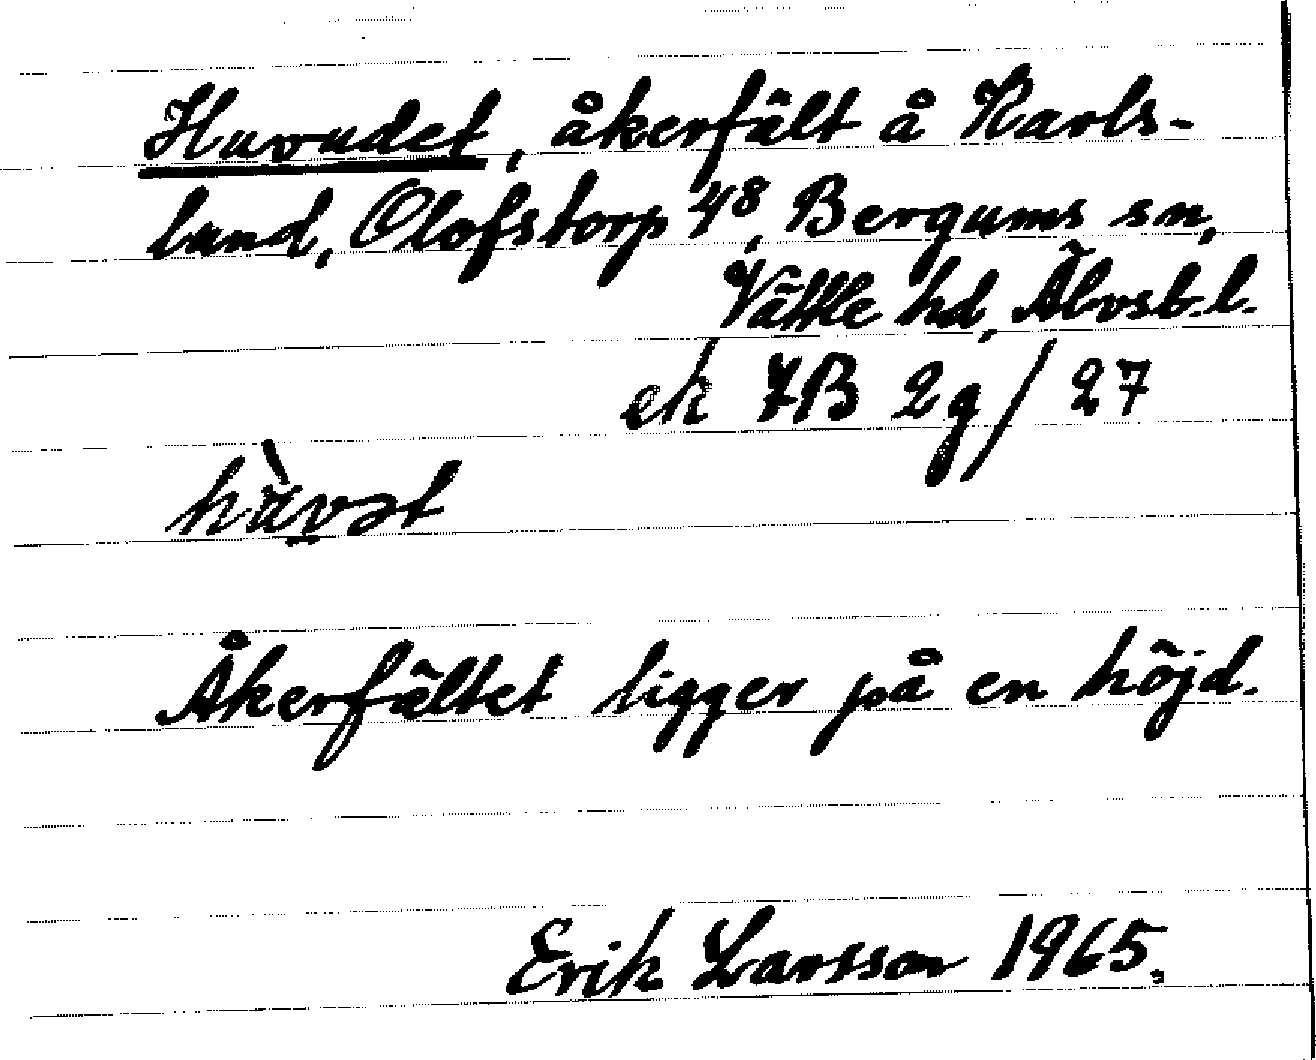 Huvudet, åkerfält å Karls-
land, Olofstorp 4⁸, Bergums sn,
Vättle hd, Älvsb. l.
ek 7B 2g/27
hàvət
Åkerfältet ligger på en höjd.
Erik Larsson 1965.